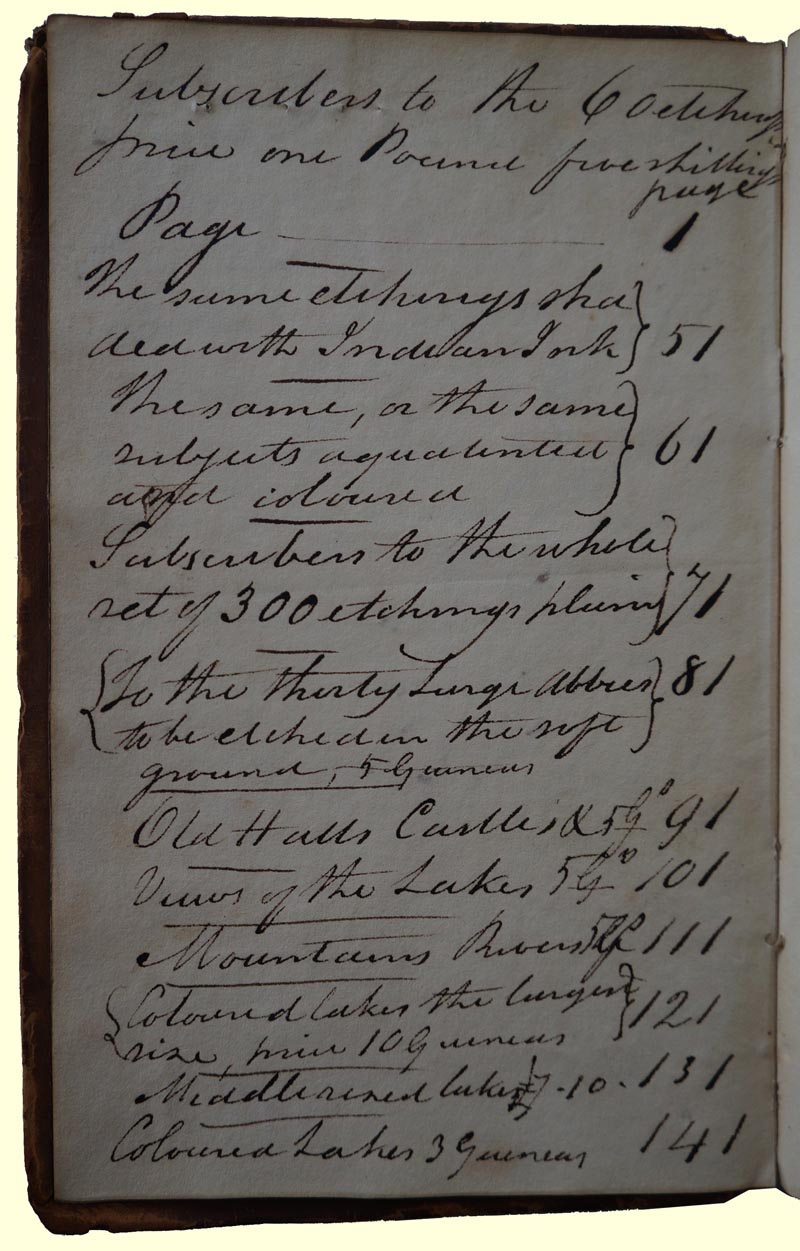 Subscribers to the 6 etchings
price one Pound five shillings
page
Page 1
The same etchings sha
ded with Indian Ink } 51
The same, or the same
subjects aquatinted } 61
and coloured
Subscribers to the whole
set of 300 etchings plain } 71
{ To the thirty Large Abbies } 81
to be etched in the soft
ground, 5 Guineas
Old Halls Castles & 5 Gs 91
Views of the Lakes 5 Gs 101
Mountains Rivers 111
{ Coloured lakes the largest } 121
size, price 10 Guineas
Middle sized lakes 7-10- 131
Coloured Lakes 3 Guineas 141